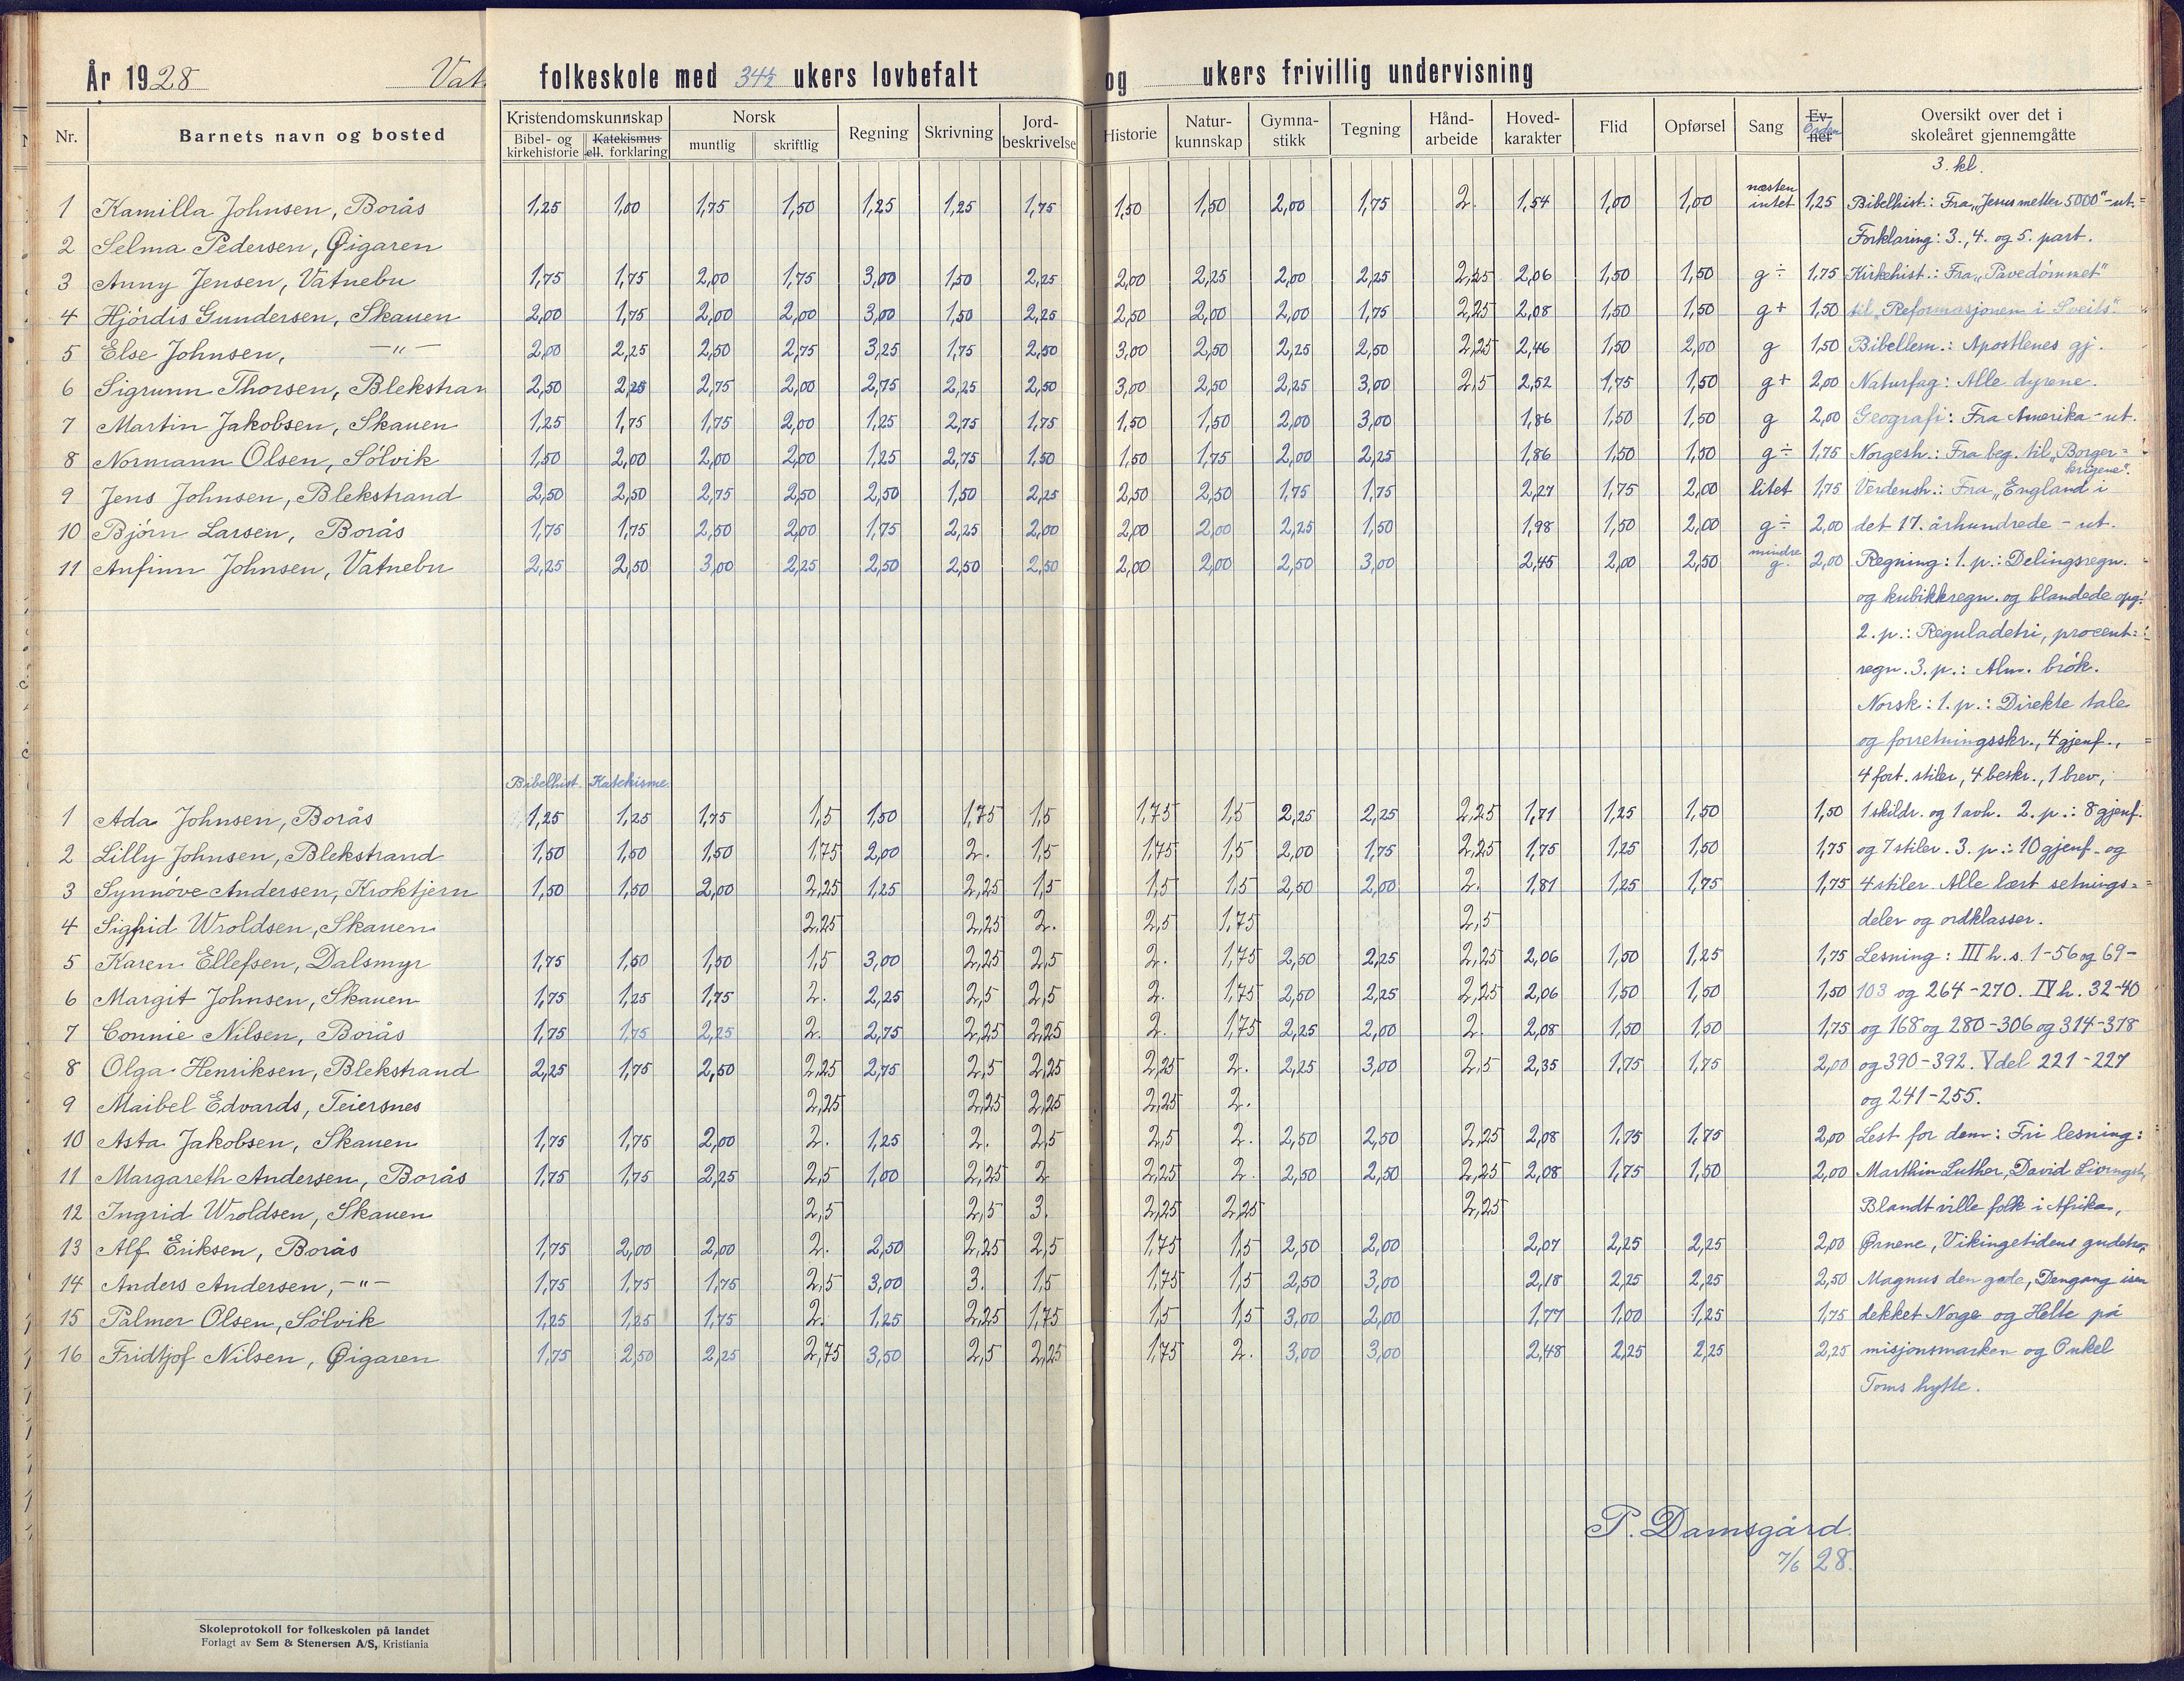 År 1928 Vat. folkeskole med 34½ ukers lovbefalt og ukers frivillig undervisning
Nr. Barnets navn og bosted Kristendomskunnskap Bibel- og kirkehistorie Katekismus ell. forklaring Norsk muntlig skriftlig Regning Skrivning Jord-beskrivelse Historie Natur-kunnskap Gymna-stikk Tegning Hånd-arbeide Hoved-karakter Flid Opførsel Sang Ev-ner Orden Oversikt over det i skoleåret gjennemgåtte
3. kl.
1 Kamilla Johnsen, Borås 1,25 1,00 1,75 1,50 1,25 1,25 1,75 1,50 1,50 2,00 1,75 2. 1,54 1,00 1,00 næsten intet 1,25 Bibelhist.: Fra "Jesus metter 5000" - ut.
2 Selma Pedersen, Øigaren Forklaring: 3., 4. og 5. part.
3 Anny Jensen, Vatnebu 1,75 1,75 2,00 1,75 3,00 1,50 2,25 2,00 2,25 2,00 2,25 2,25 2,06 1,50 1,50 g ÷ 1,75 Kirkehist.: Fra "Pavedømmet"
4 Hjørdis Gundersen, Skauen 2,00 1,75 2,00 2,00 3,00 1,50 2,25 2,50 2,00 2,00 1,75 2,25 2,08 1,50 1,50 g + 1,50 til "Reformasjonen i Sveits".
5 Else Johnsen, —"— 2,00 2,25 2,50 2,75 3,25 1,75 2,50 3,00 2,50 2,25 2,50 2,25 2,46 1,50 2,00 g 1,50 Bibellesn.: Apostlenes gj.
6 Sigrunn Thorsen, Blekstran 2,50 2,25 2,75 2,00 2,75 2,25 2,50 3,00 2,50 2,25 3,00 2,5 2,52 1,75 1,50 g + 2,00 Naturfag: Alle dyrene.
7 Martin Jakobsen, Skauen 1,25 1,75 1,75 2,00 1,25 2,75 1,75 1,50 1,50 2,00 3,00 1,86 1,50 1,50 g 2,00 Geografi: Fra Amerika - ut.
8 Normann Olsen, Sølvik 1,50 2,00 2,00 2,00 1,25 2,75 1,50 1,50 1,75 2,00 2,25 1,86 1,50 1,50 g ÷ 1,75 Norgesh.: Fra beg. til "Borger=krigene".
9 Jens Johnsen, Blekstrand 2,50 2,50 2,75 2,50 2,50 1,50 2,25 2,50 2,50 1,75 1,75 2,27 1,75 2,00 litet 1,75 Verdensh.: Fra "England i
10 Bjørn Larsen, Borås 1,75 1,75 2,50 2,00 1,75 2,25 2,00 2,00 2,00 2,25 1,50 1,98 1,50 2,00 g ÷ 2,00 det 17. århundrede - ut.
11 Anfinn Johnsen, Vatnebu 2,25 2,50 3,00 2,25 2,50 2,50 2,50 2,00 2,00 2,50 3,00 2,45 2,00 2,50 mindre g. 2,00 Regning: 1. p.: Delingsregn.
og kubikkregn. og blandede opg.
2. p.: Reguladetri, procent=
regn. 3. p.: Alm. brøk.
Norsk: 1. p.: Direkte tale
og forretningsskr., 4 gjenf.,
Bibelhist. Katekisme. 4 fort. stiler, 4 beskr., 1 brev,
1 Ada Johnsen, Borås 1,25 1,25 1,75 1,5 1,50 1,75 1,5 1,75 1,5 2,25 2,25 2,25 1,71 1,25 1,50 1,50 1 skildr. og 1 avh. 2. p.: 8 gjenf.
2 Lilly Johnsen, Blekstrand 1,50 1,50 1,50 1,75 2,00 2. 1,5 1,75 1,5 2,00 1,75 2,25 1,75 1,25 1,50 1,75 og 7 stiler. 3. p.: 10 gjenf. og
3 Synnøve Andersen, Kroktjern 1,50 1,50 2,00 2,25 1,25 2,25 1,5 1,5 1,5 2,50 2,00 2. 1,81 1,25 1,75 1,75 4 stiler. Alle lært setnings=
4 Sigfrid Wroldsen, Skauen 2,25 2,25 2. 2,5 1,75 2,5 deler og ordklasser.
5 Karen Ellefsen, Dalsmyr 1,75 1,50 1,50 1,5 3,00 2,25 2,5 2. 1,75 2,50 2,25 2,25 2,06 1,50 1,25 1,75 Lesning: III h. s. 1-56 og 69-
6 Margit Johnsen, Skauen 1,75 1,25 1,75 2. 2,25 2,5 2,5 2. 1,75 2,50 2,25 2,25 2,06 1,50 1,50 1,50 103 og 264-270. IV h. 32-40
7 Connie Nilsen, Borås 1,75 1,75 2,25 2. 2,75 2,25 2,25 2. 1,75 2,25 2,00 2. 2,08 1,50 1,50 1,75 og 168 og 280-306 og 314-378
8 Olga Henriksen, Blekstrand 2,25 1,75 2,50 2,25 2,75 2,5 2,25 2,25 2. 2,25 3,00 2,5 2,35 1,75 1,75 2,00 og 390-392. V del 221-227
9 Maibel Edvards, Teiersnes 2,25 2,25 2,25 2,25 2. og 241-255.
10 Asta Jakobsen, Skauen 1,75 1,75 2,00 2. 1,25 2. 2,5 2,5 2. 2,50 2,50 2,25 2,08 1,75 1,75 2,00 Lest for dem: Fri lesning:
11 Margareth Andersen, Borås 1,75 1,75 2,25 2,5 1,00 2,25 2 2,25 2. 2,50 2,50 2,25 2,08 1,75 1,50 2,00 Marthin Luther, David Livingst.,
12 Ingrid Wroldsen, Skauen 2,5 2,5 3. 2,25 2,25 2,25 Blandt ville folk i Afrika,
13 Alf Eriksen, Borås 1,75 2,00 2,00 2. 2,50 2,25 2,5 1,75 1,5 2,50 2,00 2,07 2,25 2,25 2,00 Ørnene, Vikingetidens gudetro,
14 Anders Andersen, —"— 1,75 1,75 1,75 2,5 3,00 3. 1,5 1,75 1,5 2,50 3,00 2,18 2,25 2,25 2,50 Magnus den gode, Dengang isen
15 Palmer Olsen, Sølvik 1,25 1,25 1,75 2. 1,25 2,25 1,75 1,5 1,5 3,00 2,00 1,77 1,00 1,25 1,75 dekket Norge og Helte på
16 Fridtjof Nilsen, Øigaren 1,75 2,50 2,25 2,75 3,50 2,5 2,25 1,75 2. 3,00 3,00 2,48 2,25 2,25 2,25 misjonsmarken og Onkel
Toms hytte.
P. Damsgård.
7/6 28.
Skoleprotokoll for folkeskolen på landet
Forlagt av Sem & Stenersen A/S, Kristiania